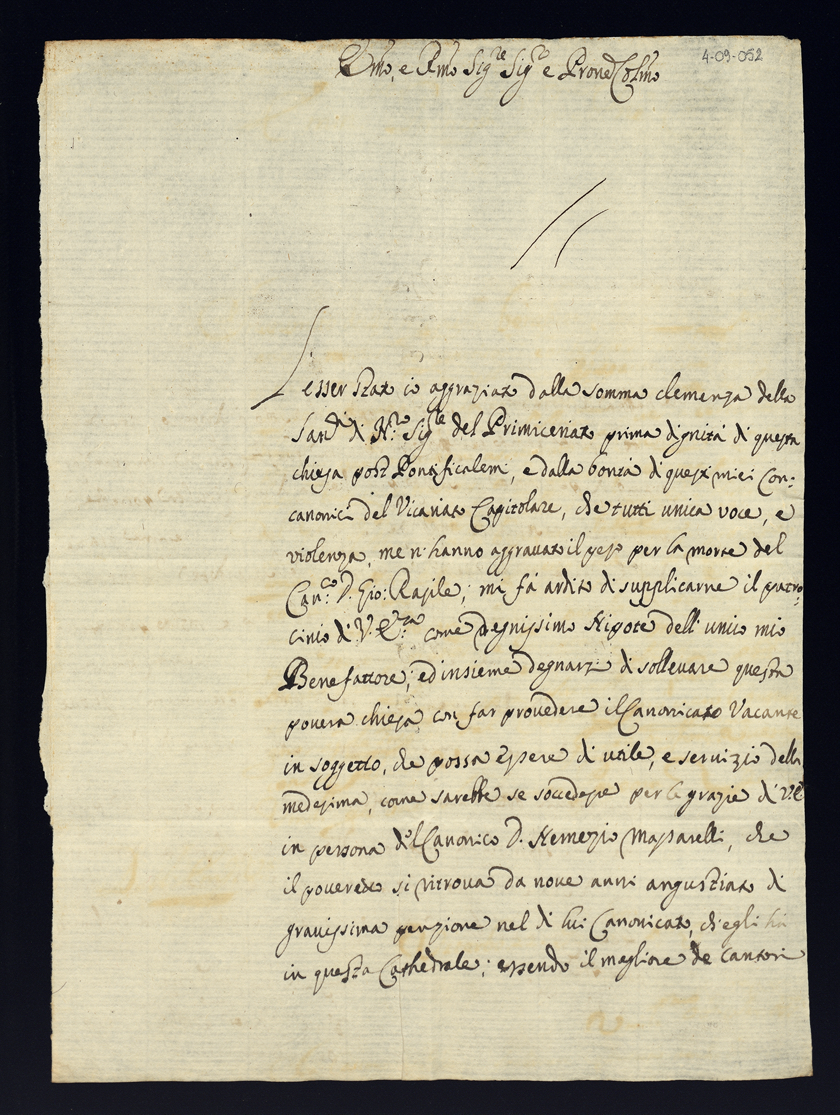 Emo, e Rmo Sig.re Sig.re e Prone Colmo
4-09-052
L'esser stato io aggraziato dalla somma clemenza della
San.tà di N.ro Sig.re del Primiceriato prima dignità di questa
chiesa post Pontificalem, e dalla bontà di questi miei Con:
canonici del Vicariato Capitolare, che tutti unica voce, e
violenza, me n'hanno aggravato il peso per la morte del
Can.co D. Gio: Rasile; mi fà ardito di supplicarne il patro:
cinio di V. E.za come degnissimo Nipote dell'unico mio
Benefattore; ed insieme degnarsi di sollevare questa
povera chiesa con far provedere il Canonicato Vacante
in soggetto, che possa essere di utile, e servizio della
medesima, come sarebbe se soccedesse per le grazie di V.E.
in persona del Canonico D. Nemezio Massarelli, che
il poveretto si ritrova da nove anni angustiato di
gravissima penzione nel di lui Canonicato, ch'egli hà
in questa Cathedrale; essendo il magliore de Cantori